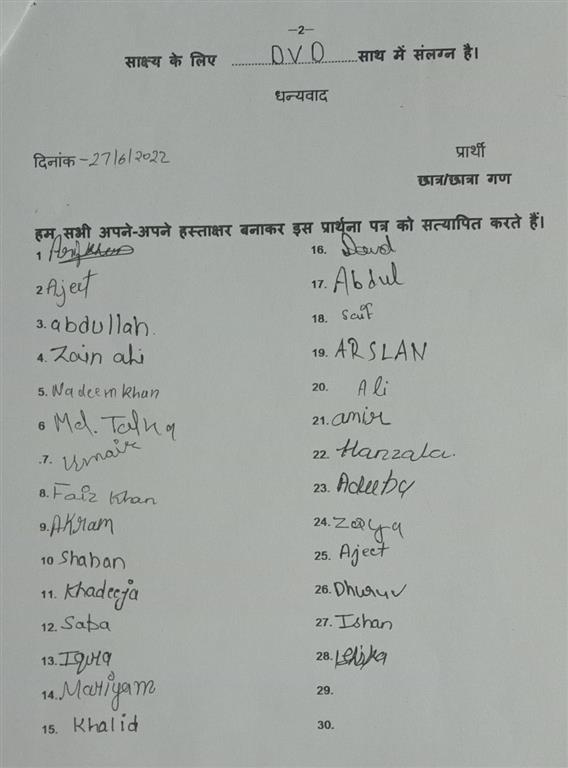 –2–
साक्ष्य के लिए ........DVD........ साथ में संलग्न है।
धन्यवाद
दिनांक -27/6/2022
प्रार्थी
छात्र/छात्रा गण
हम सभी अपने-अपने हस्ताक्षर बनाकर इस प्रार्थना पत्र को सत्यापित करते हैं।
1
2 Ajeet
3. abdullah.
4. Zain ali
5. Nadeem khan
6 Md. Talha
.7. Umair
8. Faiz Khan
9. AKram
10 Shaban
11. Khadeeja
12. Saba
13. Iqra
14. Mariyam
15. Khalid
16.
17. Abdul
18. Saif
19. ARSLAN
20. Ali
21. amir
22. Hanzala.
23. Adeeba
24. Zoya
25. Ajeet
26. Dhuruv
27. Ishan
28.
29.
30.